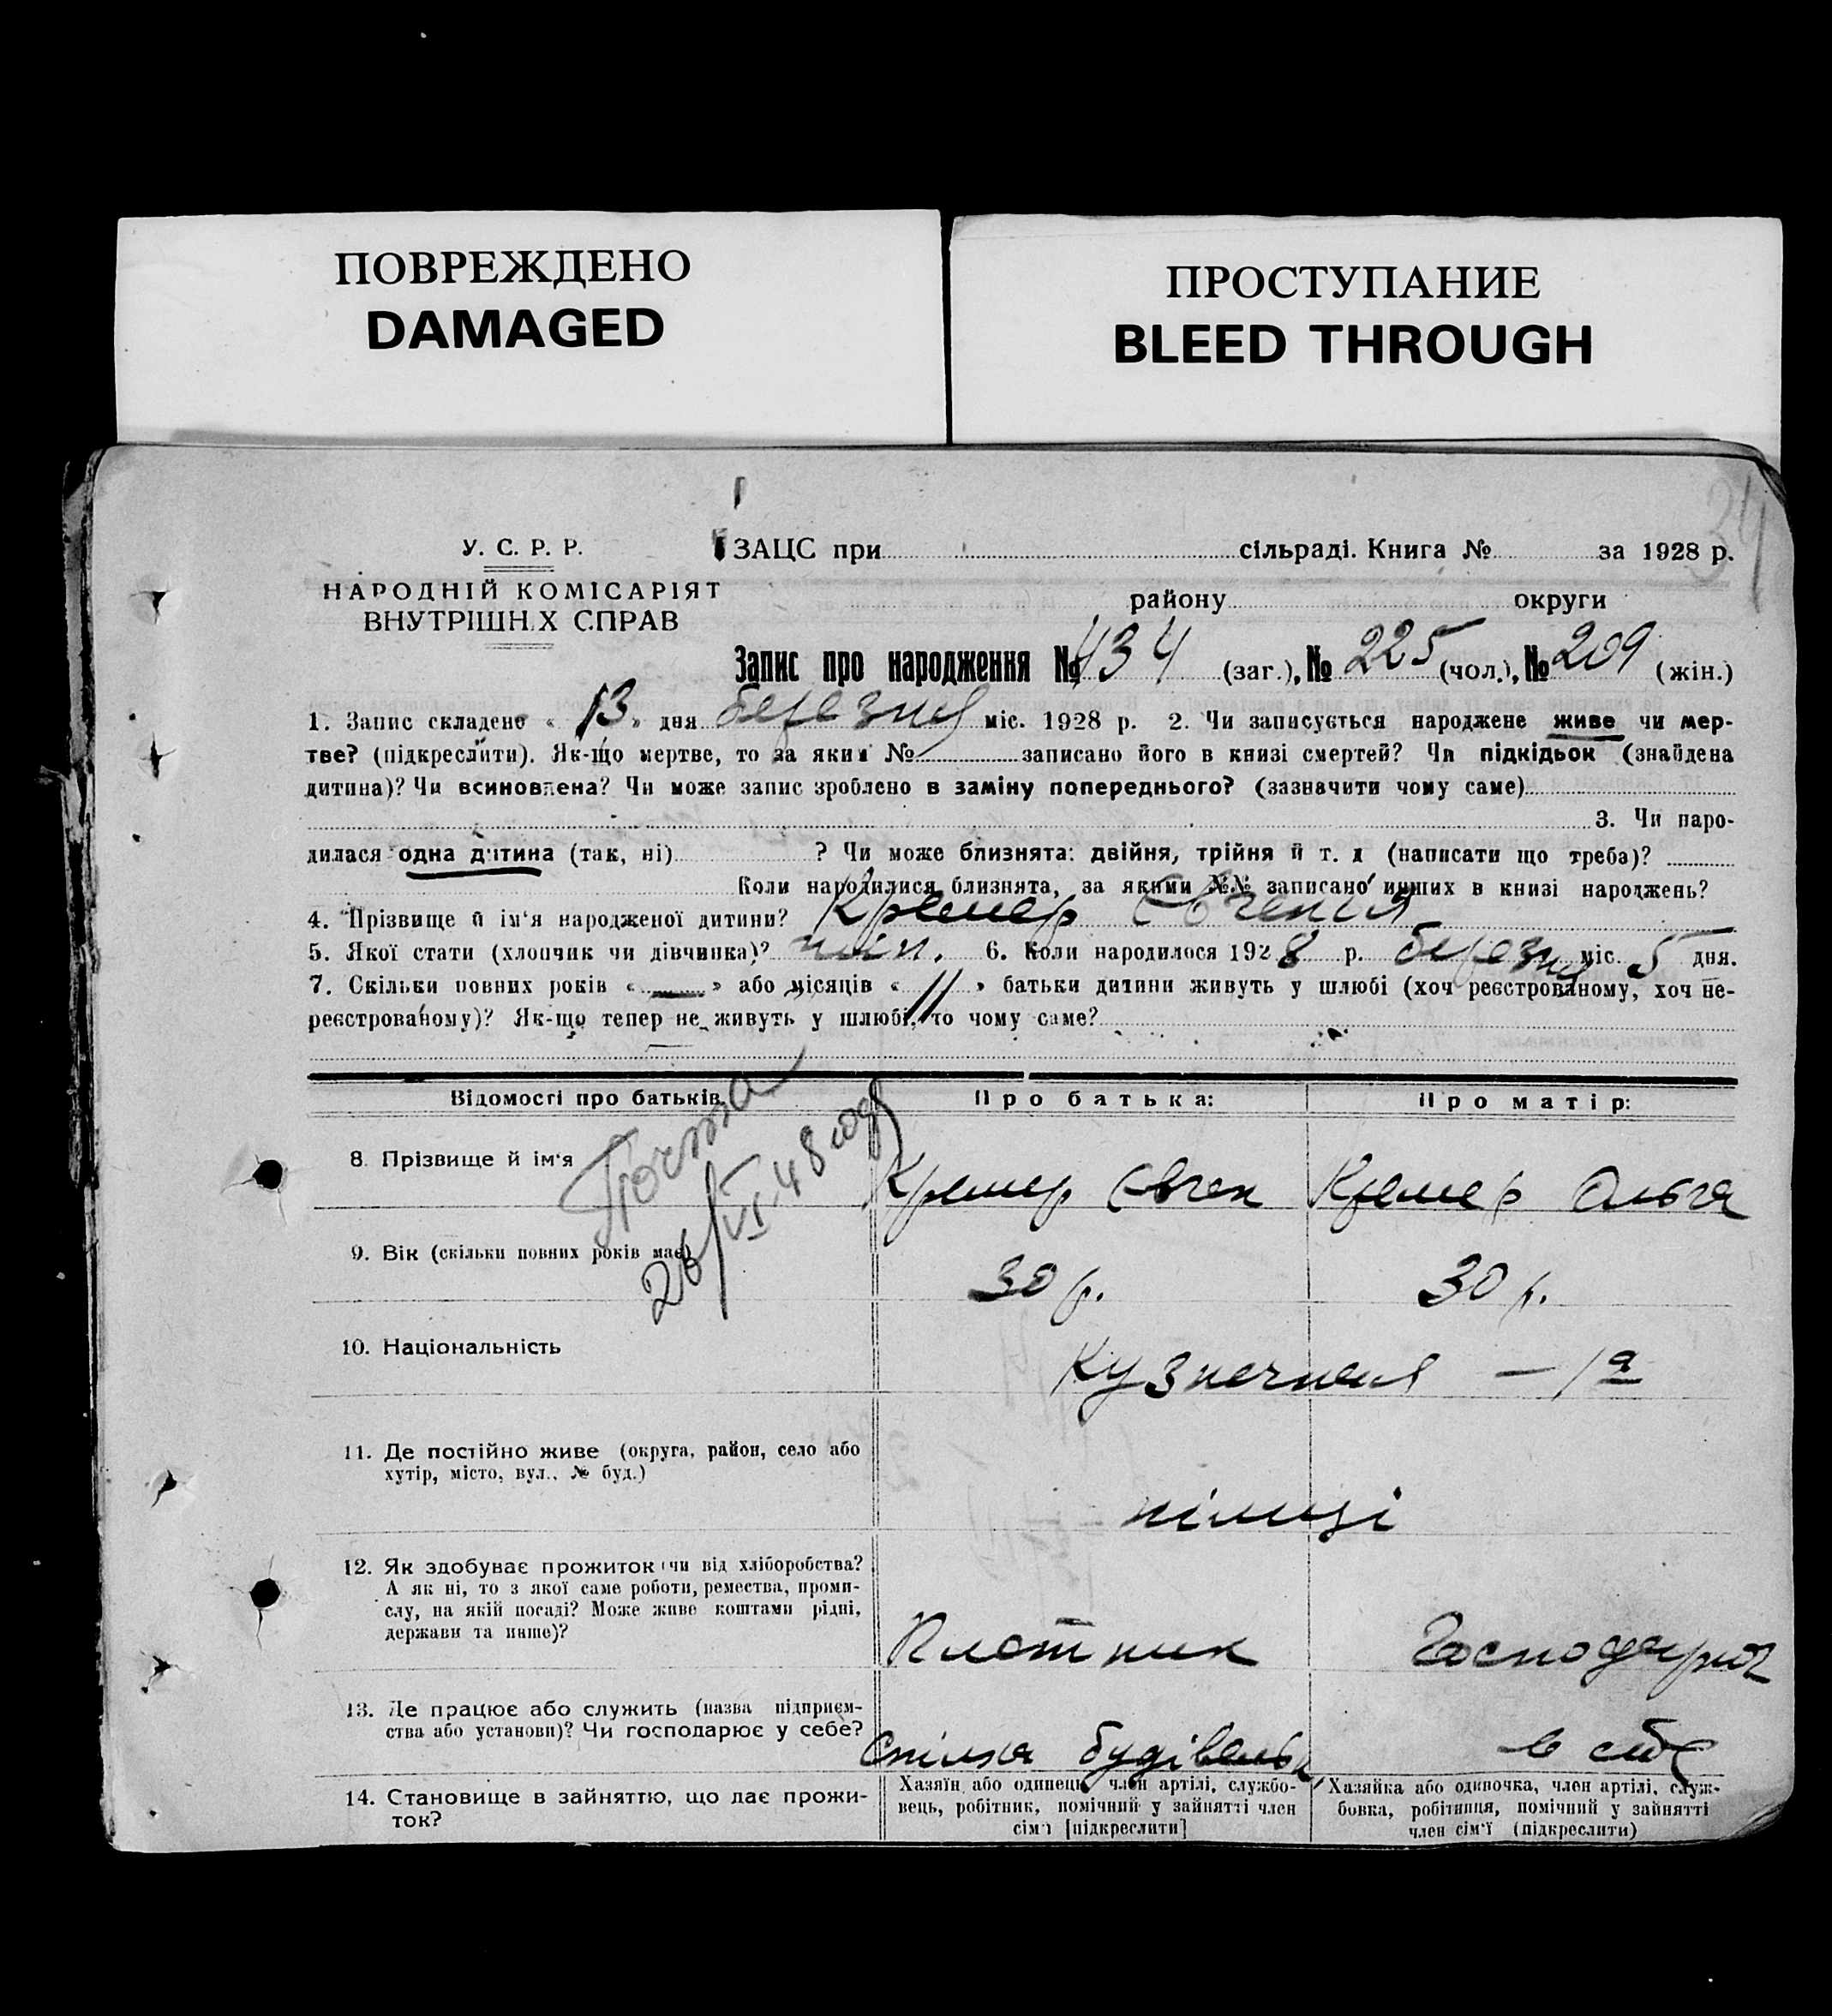 ПОВРЕЖДЕНО
DAMAGED
ПРОСТУПАНИЕ
BLEED THROUGH
34
У. С. Р. Р.
НАРОДНІЙ КОМІСАРІЯТ
ВНУТРІШН.Х СПРАВ
ЗАЦС при сільраді. Книга № за 1928 р.
району округи
Запис про народження № 434 (заг.), № 225 (чол.), № 209 (жін.)
1. Запис складено « 13 » дня березня міс. 1928 р. 2. Чи записується народжене живе чи мер-
тве? (підкреслити). Як-що мертве, то за яким № записано його в книзі смертей? Чи підкідьок (знайдена
дитина)? Чи всиновлена? Чи може запис зроблено в заміну попереднього? (зазначити чому саме)
3. Чи наро-
дилася одна дитина (так, ні) ? Чи може близнята: двійня, трійня й т. д (написати що треба)?
Коли народилися близнята, за якими №№ записано инших в книзі народжень?
4. Прізвище й ім'я народженої дитини? Кремер Євгенія
5. Якої стати (хлопчик чи дівчинка)? жін. 6. Коли народилося 1928 р. березня міс. 5 дня.
7. Скільки повних років « — » або місяців « 11 » батьки дитини живуть у шлюбі (хоч реєстрованому, хоч не-
реєстрованому)? Як-що тепер не живуть у шлюбі, то чому саме?
Відомості про батьків Про батька: Про матір:
26/VI-48 года
8. Прізвище й ім'я Кремер Євген Кремер Ольга
9. Вік (скільки повних років має) 30 р. 30 р.
10. Національність Кузнечная — 1а
11. Де постійно живе (округа, район, село або
хутір, місто, вул., № буд.) німці
12. Як здобуває прожиток (чи від хліборобства?
А як ні, то з якої саме роботи, ремества, проми-
слу, на якій посаді? Може живе коштами рідні,
держави та инше)? Плотник Господарює
13. Де працює або служить (назва підприєм-
ства або установи)? Чи господарює у себе? Спілка будівельн. в себе
14. Становище в зайняттю, що дає прожи-
ток?
Хазяїн або одинець, член артілі, службо-
вець, робітник, помічний у зайнятті член
сім'ї [підкреслити]
Хазяйка або одиночка, член артілі, служ-
бовка, робітниця, помічний у зайнятті
член сім'ї (підкреслити)